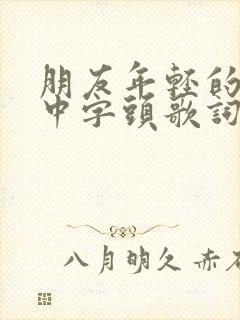 朋友年輕的
中字頭歌詞
八月明久赤石